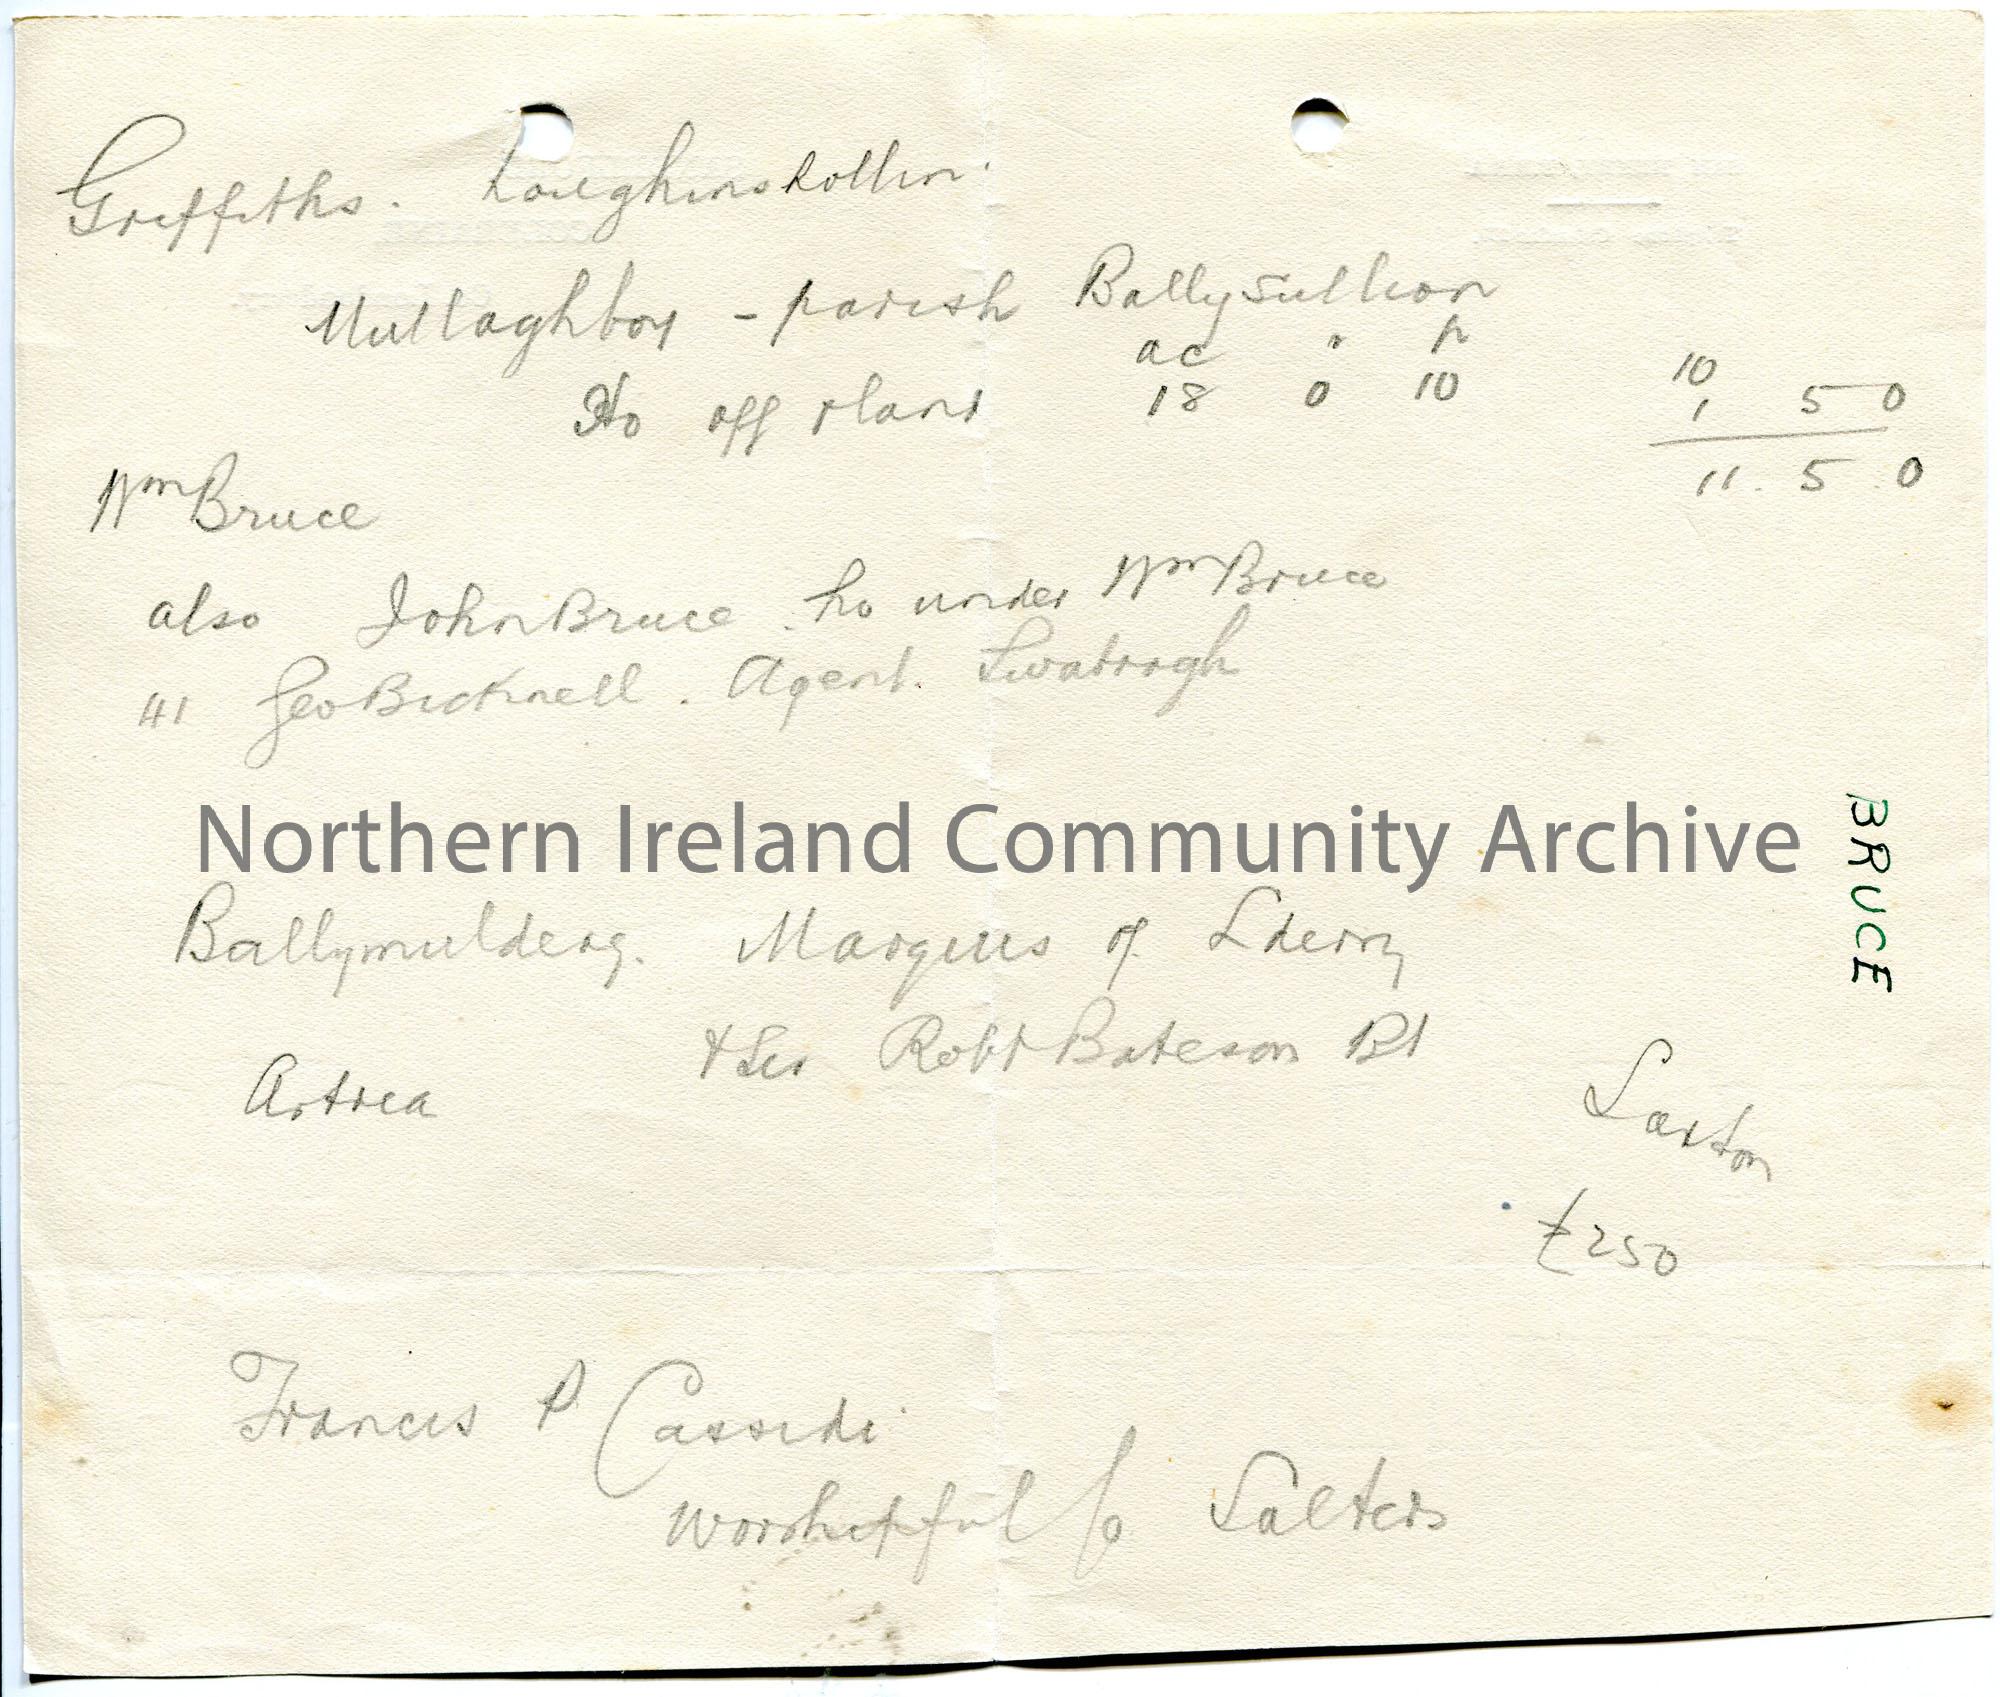 Griffiths. Loughinshollin.
Mullaghboy - parish Ballyscullion
ac r p
Ho off & land 18 0 10
10
1 5 0
11. 5. 0
Wm Bruce
also John Bruce. ho under Wm Bruce
" Geo Bicknell. Agent. Swatragh
Northern Ireland Community Archive
BRUCE
Ballymulderg. Marquis of Lderry
& Sir Robt Bateson Bt
Artrea
£250
Francis P Cassidi
Worshipful Co Salters